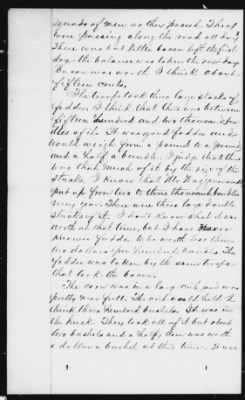 of men as they passed. They
were passing along the road all day.
There was but little bacon left the first
day the balance was taken the next day.
Bacon was worth I think about
fifteen cents.
The troops took three large stacks of
fodder. I think that there was between
fifteen hundred and two thousand bun-
dles of it. It was good fodder and
would weigh from a pound to a pound
and a half a bundle. I judge that there
was that much of it by the size of the
stacks. I know that Mr.
put up from two to three thousand bundles
every year. There were three large double
stacks of it. I don't know what it was
worth at that time, but I have never
known fodder to be worth less than
two dollars per hundred bundles. The
fodder was taken by the same troops
that took the bacon.
The corn was in a large crib and was
pretty near full. The crib would hold I
think three hundred bushels. It was in
the husk. They took all of it but about
two bushels and a half. Corn was worth
a dollar a bushel at this time. It was